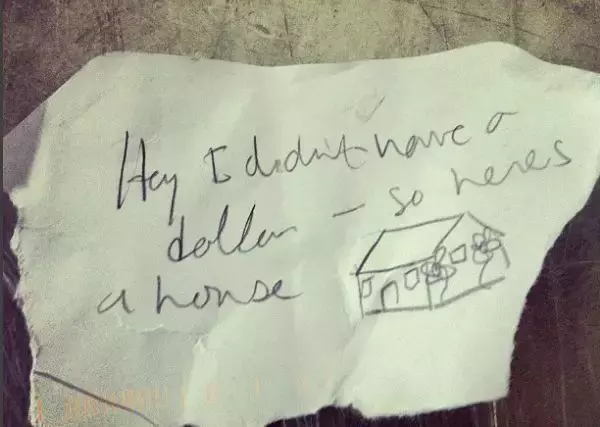 Hey I didn't have a
dollar - so heres
a house